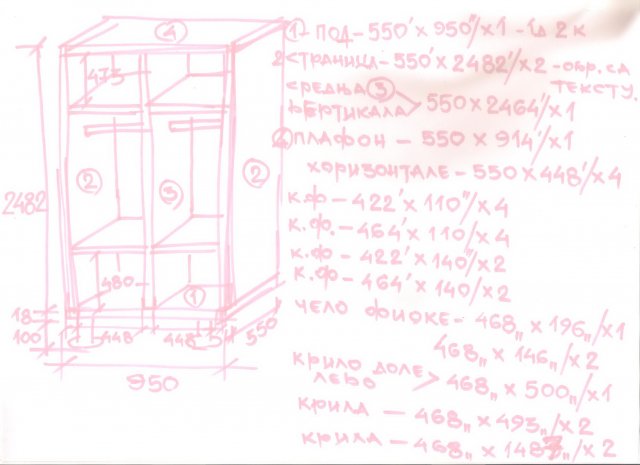 4
475
2
3
2
2482
480
1
18
100
448
448
550
950
1- ПОД - 550' x 950"/x1 - Iд 2к
2 СТРАНИЦА - 550' x 2482'/x2 - ОБР. СА ТЕКСТУ.
СРЕДЊА 3
ВЕРТИКАЛА > 550 x 2464'/x1
4 ПЛАФОН - 550 x 914'/x1
ХОРИЗОНТАЛЕ - 550 x 448'/x4
К.Ф - 422' x 110"/x4
К.Ф. - 464' x 110/x4
К.Ф - 422' x 140"/x2
К.Ф - 464' x 140/x2
ЧЕЛО ФИОКЕ - 468,, x 196,,/x1
468,, x 146,,/x2
КРИЛО ДОЛЕ
ЛЕВО > 468,, x 500,,/x1
КРИЛА - 468,, x 493,,/x2
КРИЛА - 468,, x 1487,,/x2